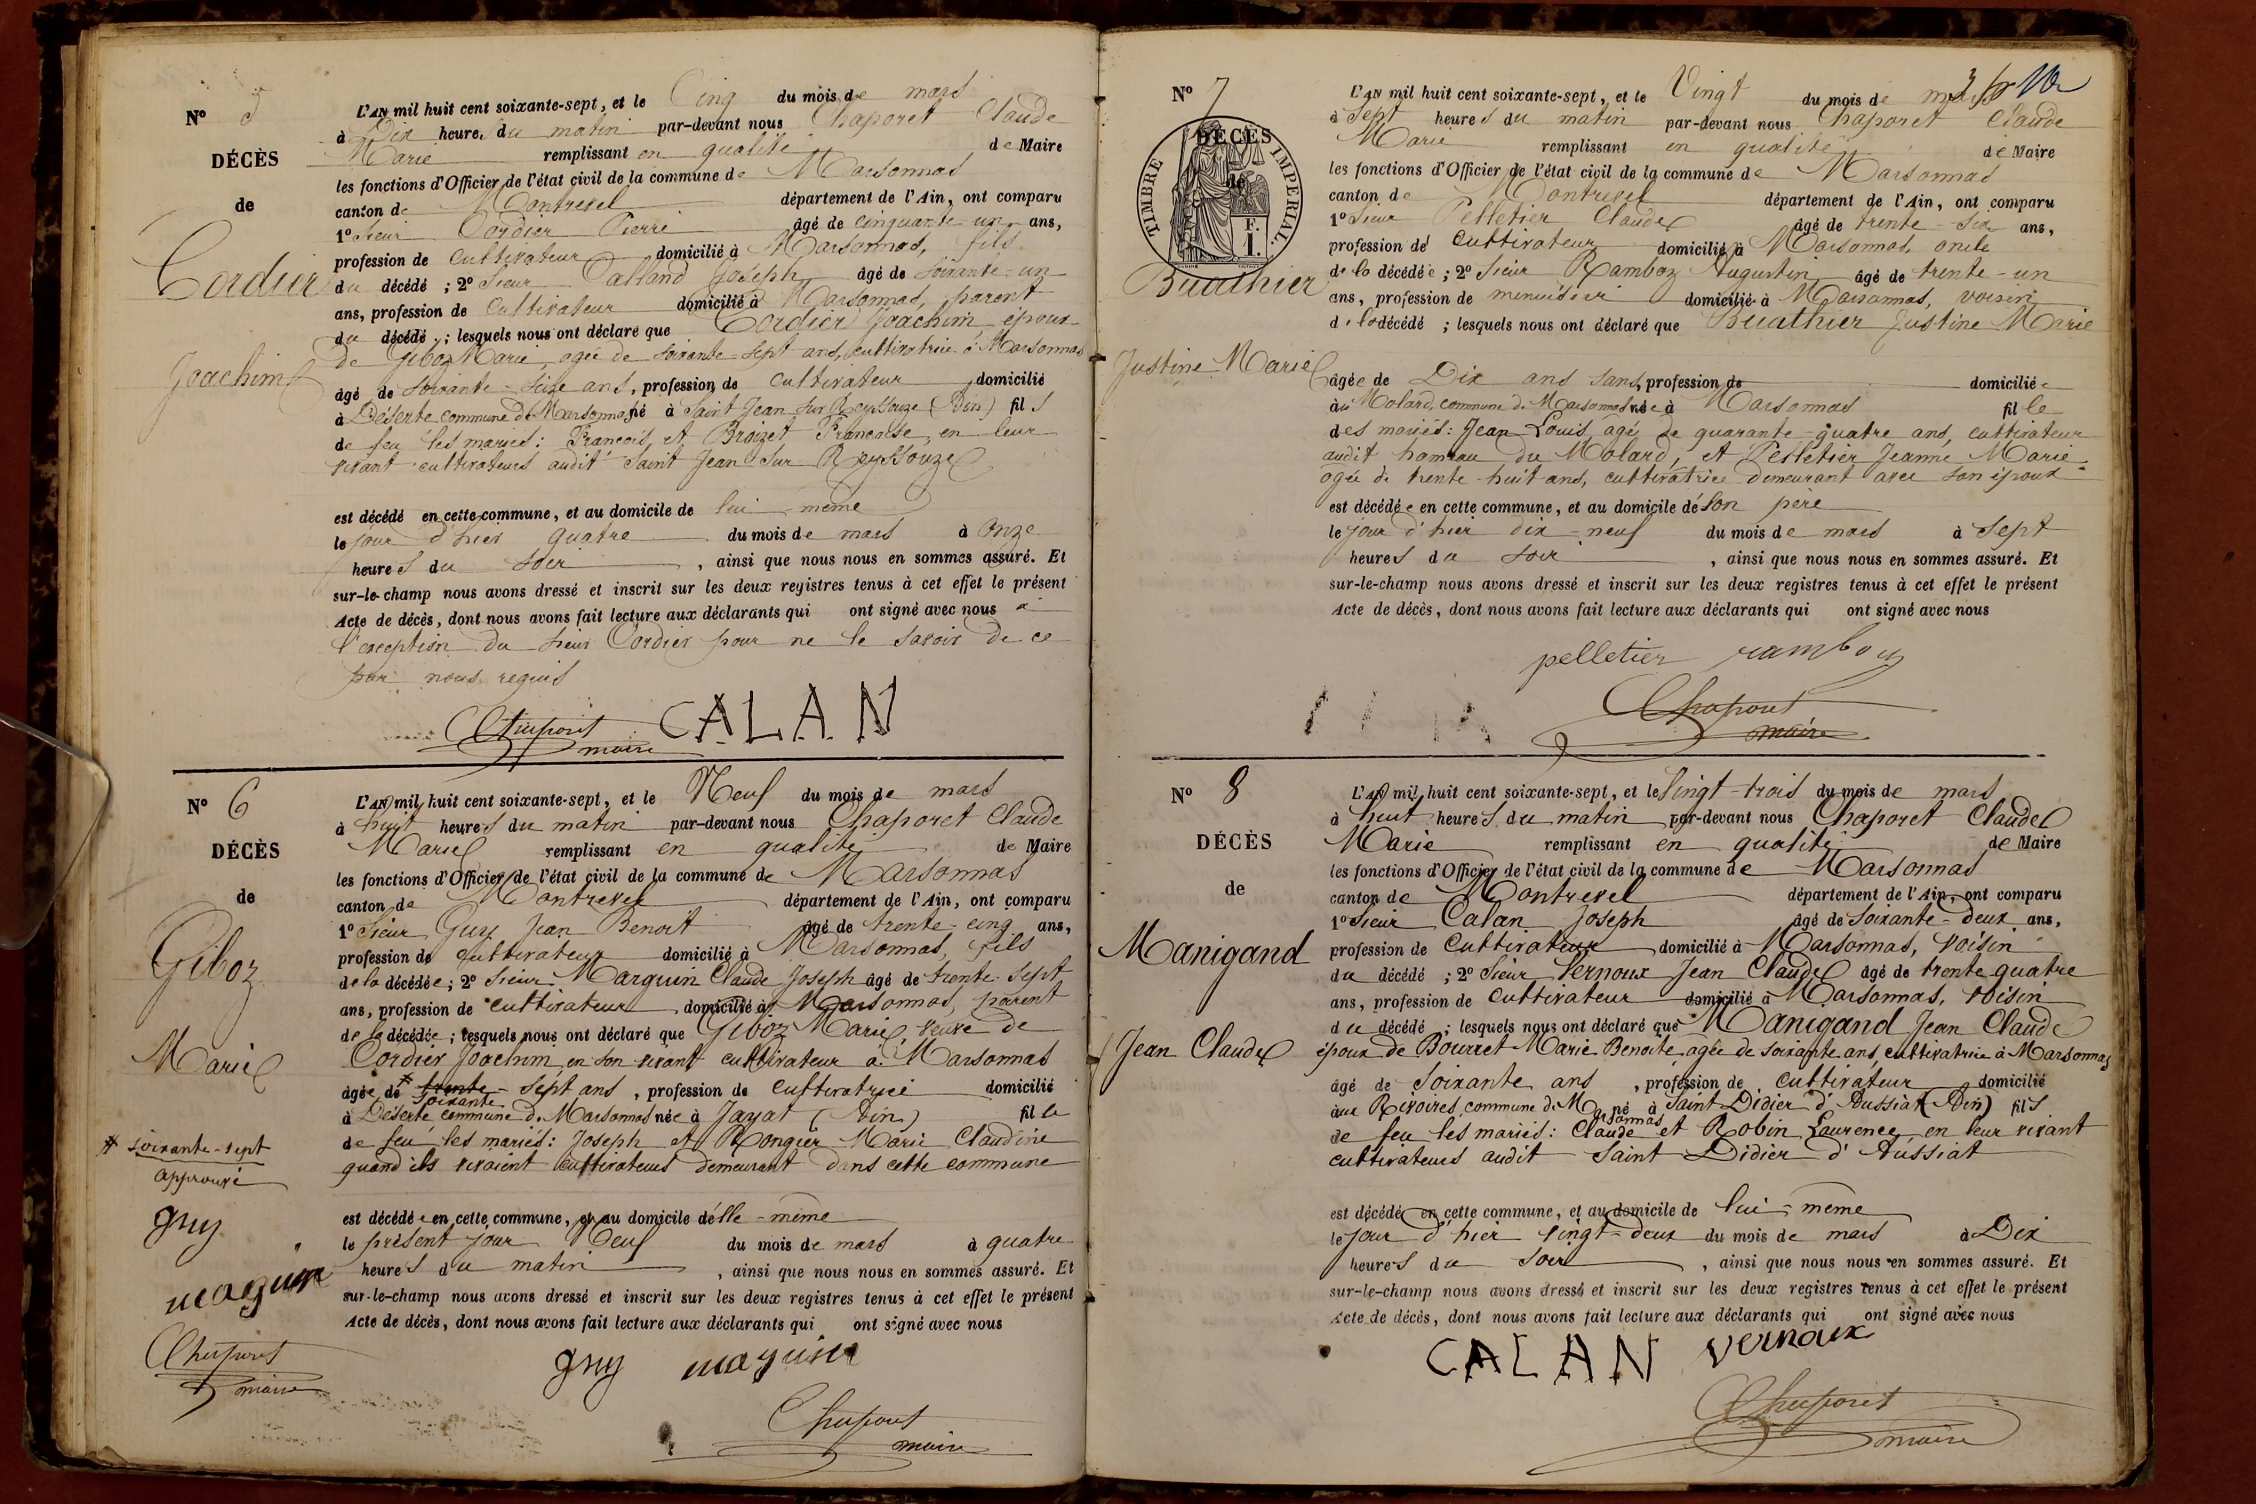 N° 5
DÉCÈS
de
Cordier
Joachim
L'AN mil huit cent soixante-sept, et le Cinq du mois de mars
à Dix heures du matin par-devant nous Chaporet Claude
Marie remplissant en qualité de Maire
les fonctions d'Officier de l'état civil de la commune de Marsonnas
canton de Montrevel département de l'Ain, ont comparu
1° Sieur Cordier Pierre âgé de cinquante-un ans,
profession de cultivateur domicilié à Marsonnas, fils
du décédé ; 2° Sieur Calland Joseph âgé de soixante-un
ans, profession de cultivateur domicilié à Marsonnas, parent
du décédé ; lesquels nous ont déclaré que Cordier Joachim époux
de Giboz Marie, agée de soixante-sept ans, cultivatrice à Marsonnas
âgé de soixante-seize ans, profession de cultivateur domicilié
à Déserte commune de Marsonnas né à Saint Jean sur Reyssouze (Ain) fils
de feu les mariés : François et Broizet Françoise, en leur
vivant cultivateurs audit Saint Jean sur Reyssouze
est décédé en cette commune, et au domicile de lui même
le jour d'hier quatre du mois de mars à Onze
heures du soir , ainsi que nous nous en sommes assuré. Et
sur-le-champ nous avons dressé et inscrit sur les deux registres tenus à cet effet le présent
Acte de décès, dont nous avons fait lecture aux déclarants qui ont signé avec nous à
l'exception du sieur Cordier pour ne le savoir de ce
par nous requis
Chaporet maire CALAN
N° 6
DÉCÈS
de
Giboz
Marie
# soixante-sept
approuvé
guy
maguin
Chaporet
maire
L'AN mil huit cent soixante-sept, et le Neuf du mois de mars
à huit heures du matin par-devant nous Chaporet Claude
Marie remplissant en qualité de Maire
les fonctions d'Officier de l'état civil de la commune de Marsonnas
canton de Montrevel département de l'Ain, ont comparu
1° Sieur Guy Jean Benoit âgé de trente-cinq ans,
profession de cultivateur domicilié à Marsonnas, fils
de la décédée ; 2° Sieur Marguin Claude Joseph âgé de trente-sept
ans, profession de cultivateur domicilié à Marsonnas, parent
de la décédée ; lesquels nous ont déclaré que Giboz Marie, veuve de
Cordier Joachim, en son vivant cultivateur à Marsonnas
âgée de # trente-sept ans, profession de cultivatrice domicilié
soixante
à Déserte commune de Marsonnas née à Jayat (Ain) fille
de feu les mariés : Joseph et Rongier Marie Claudine
quand ils vivaient cultivateurs demeurant dans cette commune
est décédée en cette commune, et au domicile d'elle-même
le présent jour Neuf du mois de mars à quatre
heures du matin , ainsi que nous nous en sommes assuré. Et
sur-le-champ nous avons dressé et inscrit sur les deux registres tenus à cet effet le présent
Acte de décès, dont nous avons fait lecture aux déclarants qui ont signé avec nous
guy maguin
Chaporet
maire
N° 7
DÉCÈS
de
TIMBRE IMPERIAL.
F.
1.
Buathier
Justine Marie
L'AN mil huit cent soixante-sept, et le Vingt du mois de mars
à sept heures du matin par-devant nous Chaporet Claude
Marie remplissant en qualité de Maire
les fonctions d'Officier de l'état civil de la commune de Marsonnas
canton de Montrevel département de l'Ain, ont comparu
1° Sieur Pelletier Claude âgé de trente-six ans,
profession de cultivateur domicilié à Marsonnas, oncle
de la décédée ; 2° Sieur Ramboz Augustin âgé de trente-un
ans, profession de menuisier domicilié à Marsonnas, voisin
de la décédé ; lesquels nous ont déclaré que Buathier Justine Marie
âgée de Dix ans sans profession de domiciliée
au Molard, commune de Marsonnas née à Marsonnas fille
des mariés : Jean Louis, agé de quarante-quatre ans, cultivateur
audit hameau du Molard, et Pelletier Jeanne Marie
agée de trente-huit ans, cultivatrice demeurant avec son époux
est décédée en cette commune, et au domicile de son père
le jour d'hier dix-neuf du mois de mars à sept
heures du soir , ainsi que nous nous en sommes assuré. Et
sur-le-champ nous avons dressé et inscrit sur les deux registres tenus à cet effet le présent
Acte de décès, dont nous avons fait lecture aux déclarants qui ont signé avec nous
pelletier ramboz
Chaporet
maire
N° 8
DÉCÈS
de
Manigand
Jean Claude
L'AN mil huit cent soixante-sept, et le Vingt-trois du mois de mars
à huit heures du matin par-devant nous Chaporet Claude
Marie remplissant en qualité de Maire
les fonctions d'Officier de l'état civil de la commune de Marsonnas
canton de Montrevel département de l'Ain, ont comparu
1° Sieur Calan Joseph âgé de soixante-deux ans,
profession de cultivateur domicilié à Marsonnas, voisin
du décédé ; 2° Sieur Vernoux Jean Claude âgé de trente quatre
ans, profession de cultivateur domicilié à Marsonnas, voisin
du décédé ; lesquels nous ont déclaré que Manigand Jean Claude
époux de Bourret Marie Benoite, agée de soixante ans, cultivatrice à Marsonnas
âgé de soixante ans , profession de cultivateur domicilié
aux Rivoires, commune de Marsonnas né à Saint Didier d'Aussiat (Ain) fils
de feu les mariés : Claude et Robin Laurence, en leur vivant
cultivateurs audit Saint Didier d'Aussiat
est décédé en cette commune, et au domicile de lui-même
le jour d'hier vingt-deux du mois de mars à Dix
heures du soir , ainsi que nous nous en sommes assuré. Et
sur-le-champ nous avons dressé et inscrit sur les deux registres tenus à cet effet le présent
Acte de décès, dont nous avons fait lecture aux déclarants qui ont signé avec nous
CALAN vernoux
Chaporet
maire